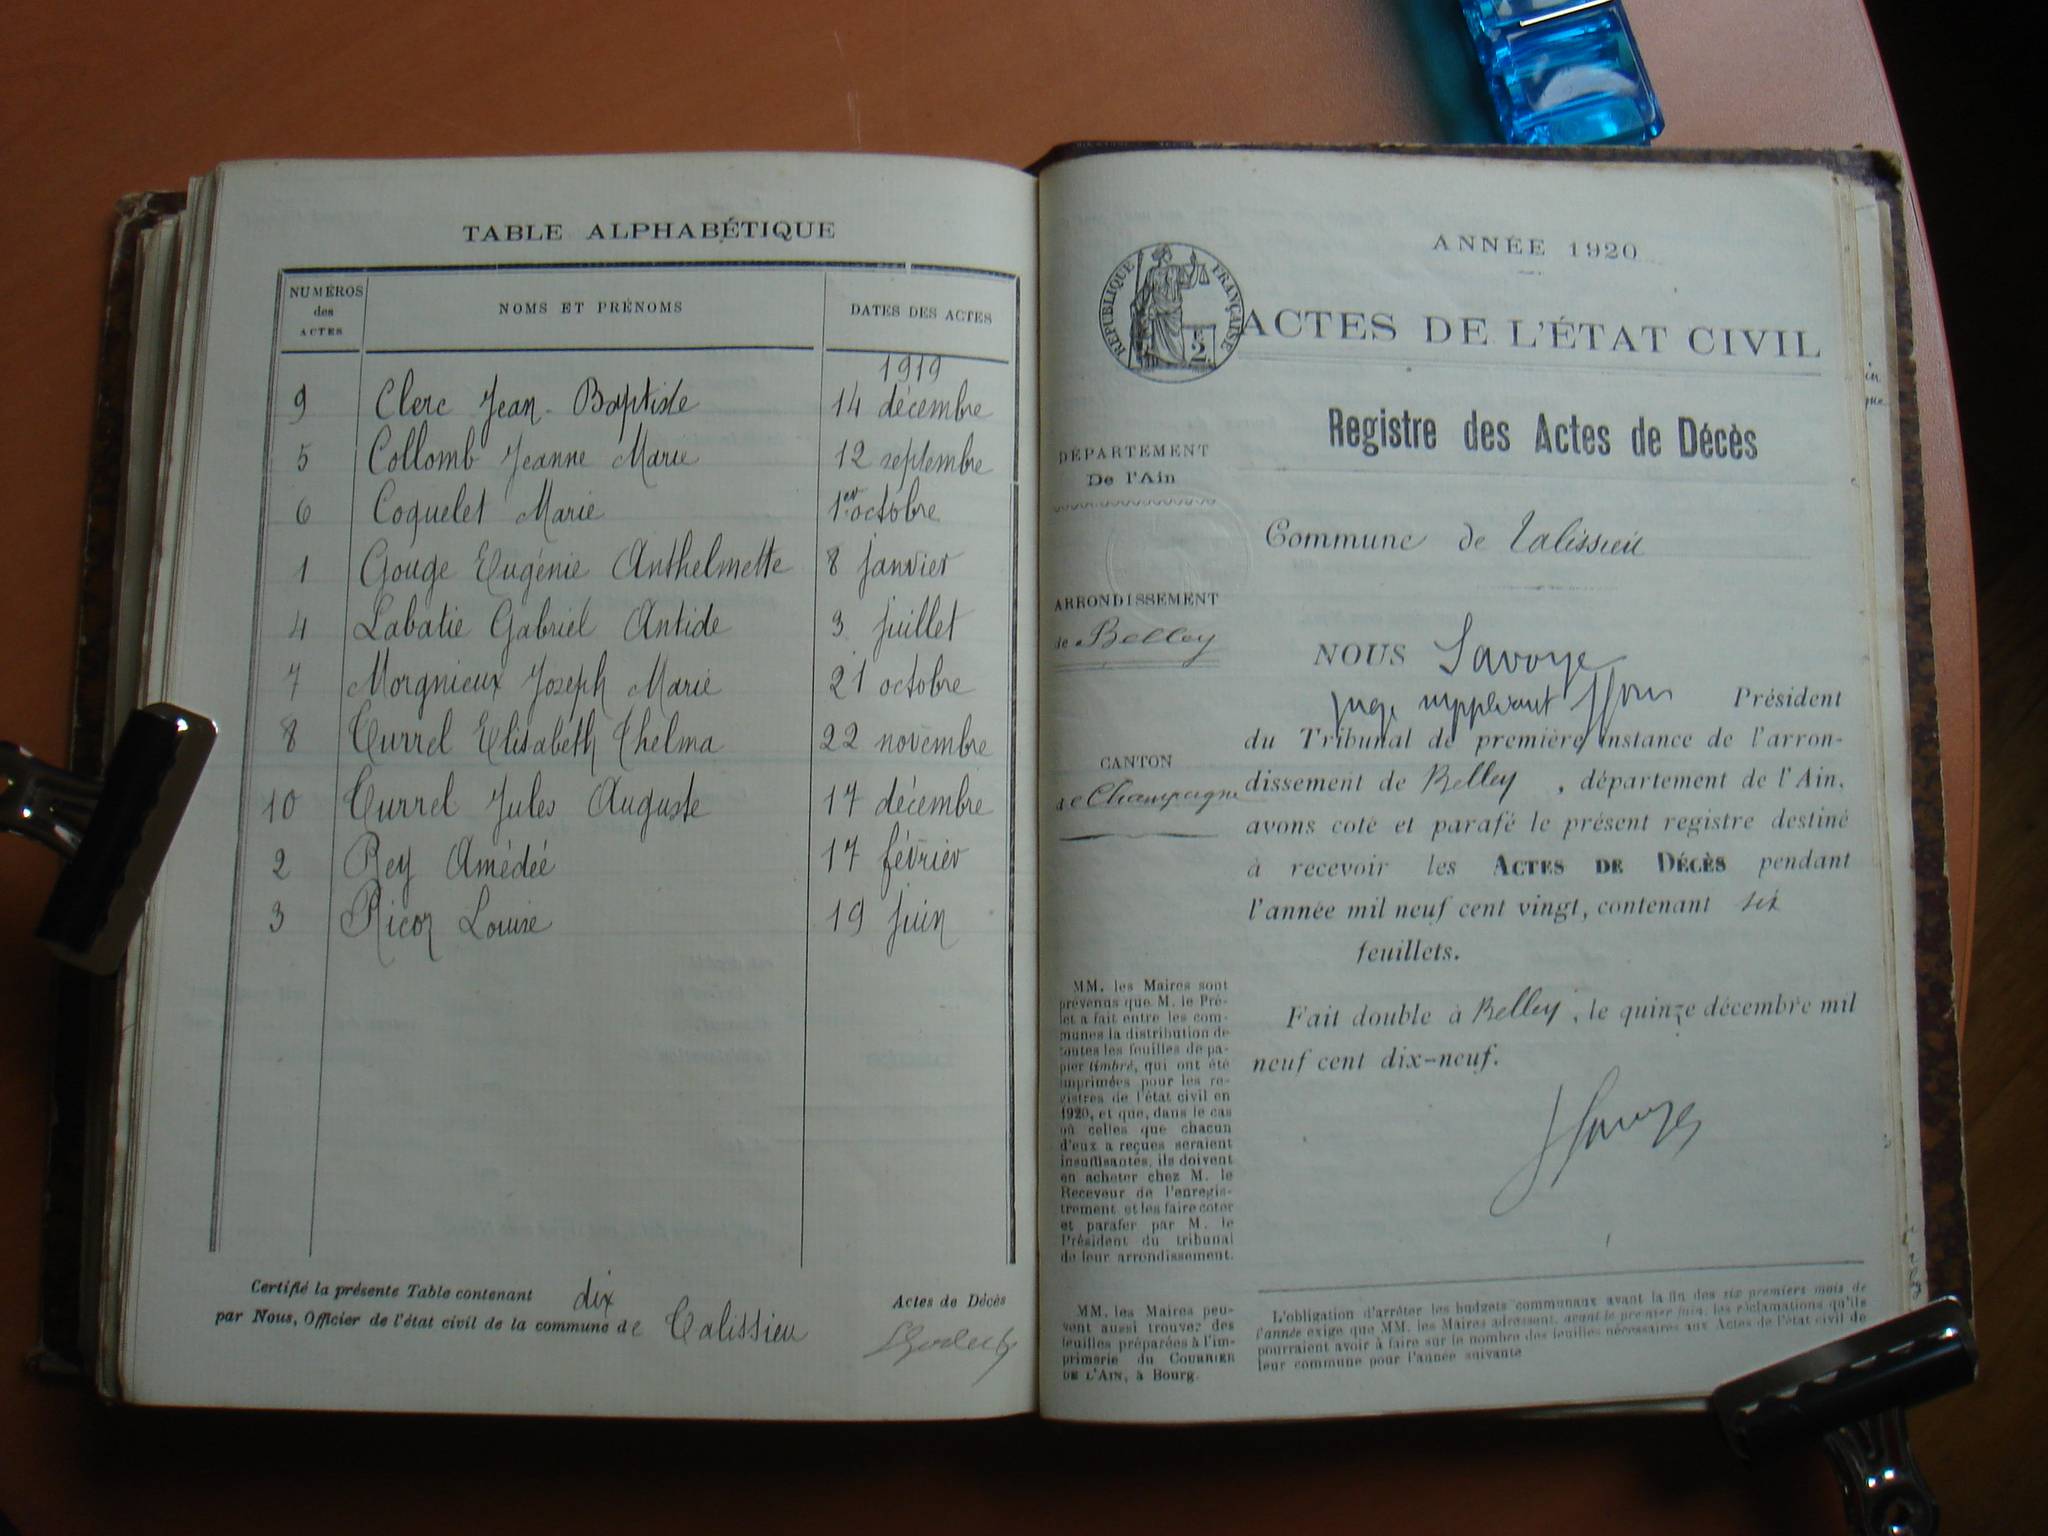 TABLE ALPHABÉTIQUE
NUMÉROS des ACTES
NOMS ET PRÉNOMS
DATES DES ACTES
1919
9 Clerc Jean-Baptiste 14 décembre
5 Collomb Jeanne Marie 12 septembre
6 Coquelet Marie 1er octobre
1 Gouge Eugénie Anthelmette 8 janvier
4 Labatie Gabriel Antide 3 juillet
7 Morgnieux Joseph Marie 21 octobre
8 Currel Elisabeth Thelma 22 novembre
10 Currel Jules Auguste 17 décembre
2 Rey Amédée 17 février
3 Ricoz Louise 19 juin
Certifié la présente Table contenant dix Actes de Décès
par Nous, Officier de l'état civil de la commune de Talissieu
ANNÉE 1920
RÉPUBLIQUE FRANÇAISE
2
ACTES DE L'ÉTAT CIVIL
Registre des Actes de Décès
DÉPARTEMENT
De l'Ain
Commune de Talissieu
ARRONDISSEMENT
de Belley
CANTON
de Champagne
NOUS Savoye
juge suppléant Président
du Tribunal de première instance de l'arron-
dissement de Belley, département de l'Ain,
avons coté et parafé le présent registre destiné
à recevoir les ACTES DE DÉCÈS pendant
l'année mil neuf cent vingt, contenant six
feuillets.
Fait double à Belley, le quinze décembre mil
neuf cent dix-neuf.
MM. les Maires sont
prévenus que M. le Pré-
fet a fait entre les com-
munes la distribution de
toutes les feuilles de pa-
pier timbré, qui ont été
imprimées pour les re-
gistres de l'état civil en
1920, et que, dans le cas
où celles que chacun
d'eux a reçues seraient
insuffisantes, ils doivent
en acheter chez M. le
Receveur de l'enregis-
trement, et les faire coter
et parafer par M. le
Président du tribunal
de leur arrondissement.
MM. les Maires peu-
vent aussi trouver des
feuilles préparées à l'im-
primerie du COURRIER
DE L'AIN, à Bourg.
L'obligation d'arrêter les budgets communaux avant la fin des six premiers mois de
l'année exige que MM. les Maires adressent, avant le premier juin, les réclamations qu'ils
pourraient avoir à faire sur le nombre des feuilles nécessaires aux Actes de l'état civil de
leur commune pour l'année suivante